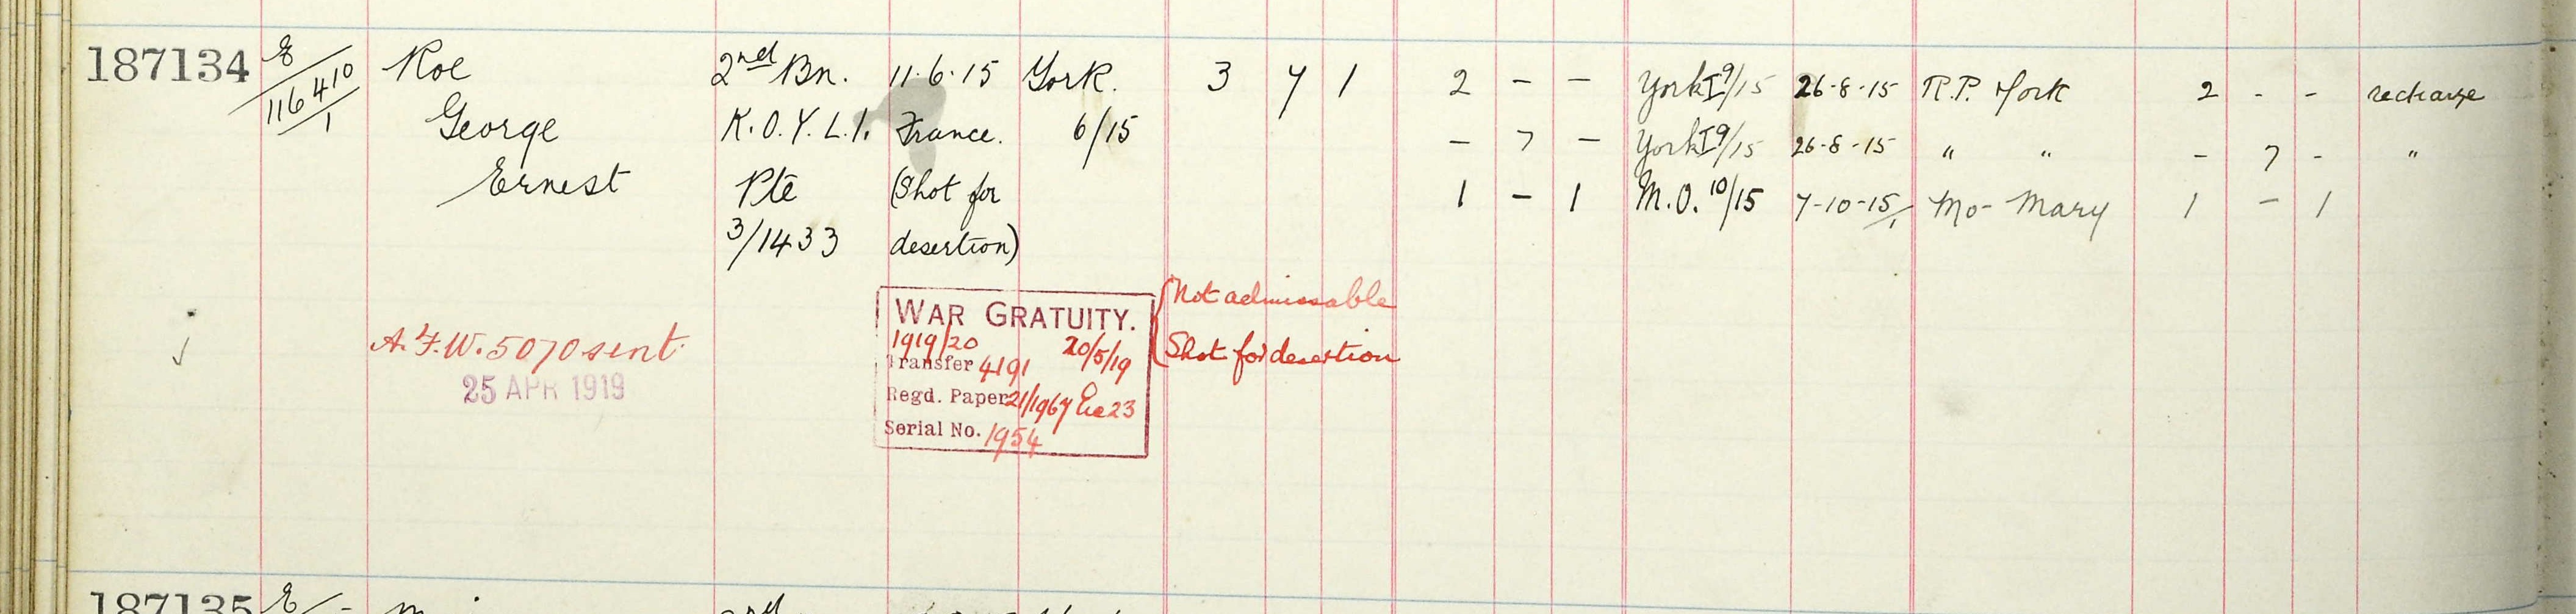 187134 E/116410/1 Roe 2nd Bn. 11.6.15 York. 3 7 1 2 - - York I 9/15 26-8-15 R.P. York 2 - - recharge
George K.O.Y.L.I. France. 6/15 - 7 - York I 9/15 26-8-15 " " - 7 - "
Ernest Pte (Shot for 1 - 1 M.O. 10/15 7-10-15/1 Mo- Mary 1 - 1
3/1433 desertion)
WAR GRATUITY. { Not admissable
A.F.W. 5070 sent 1919/20 20/5/19 Shot for desertion
Transfer 4191
25 APR 1919 Regd. Paper 21/1967
Serial No. 1954
187135 E